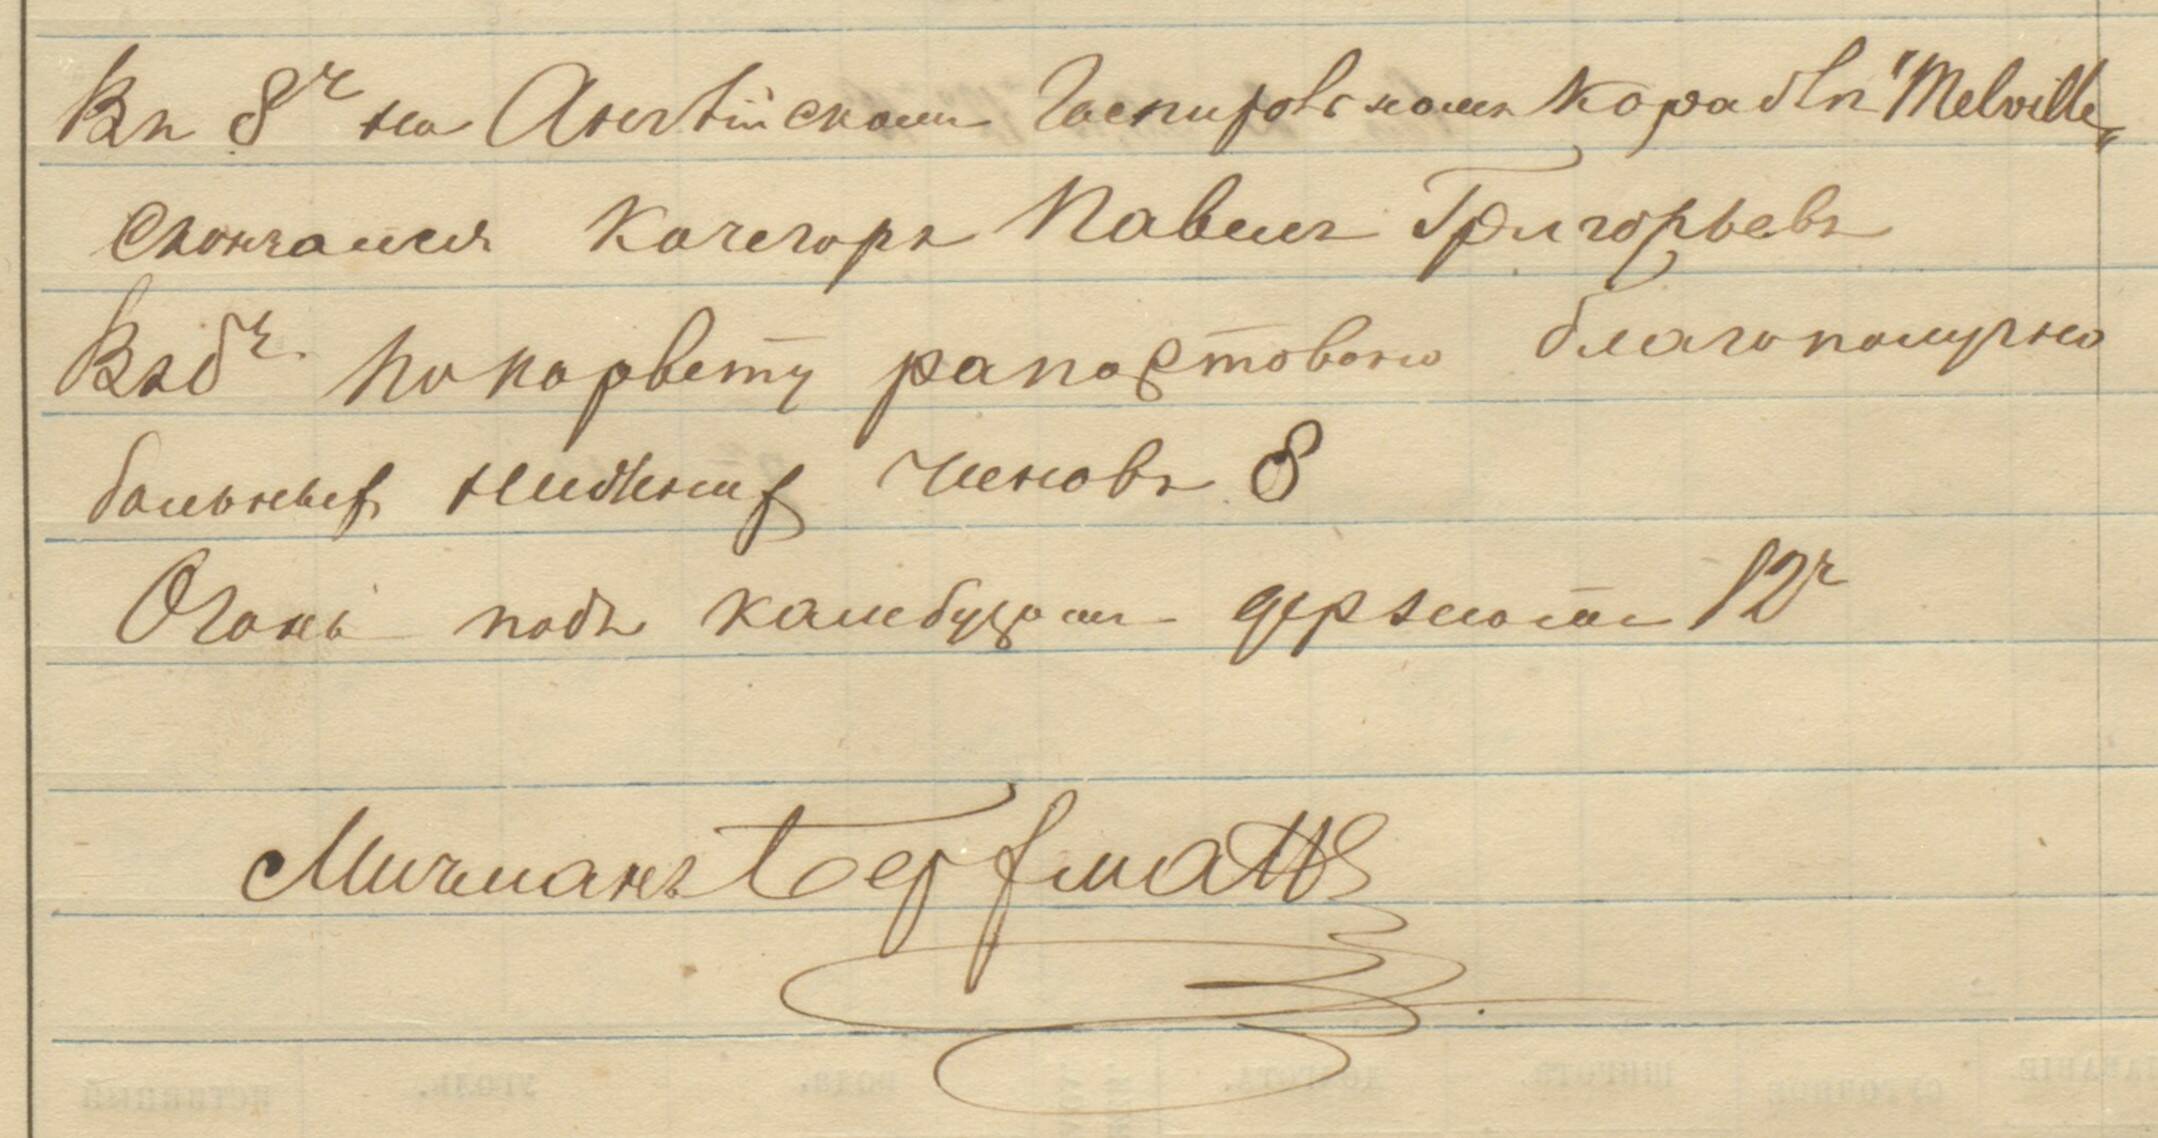 Въ 8ч на Англійскомъ Госпитовскомъ кораблѣ "Melville„
скончался Кочегаръ Павелъ Григорьевъ
Въ 6ч. по корвету рапортовано благополучно
больныхъ нижнихъ чиновъ 8
Огонь подъ камбузомъ держатъ 12ч
Мичманъ